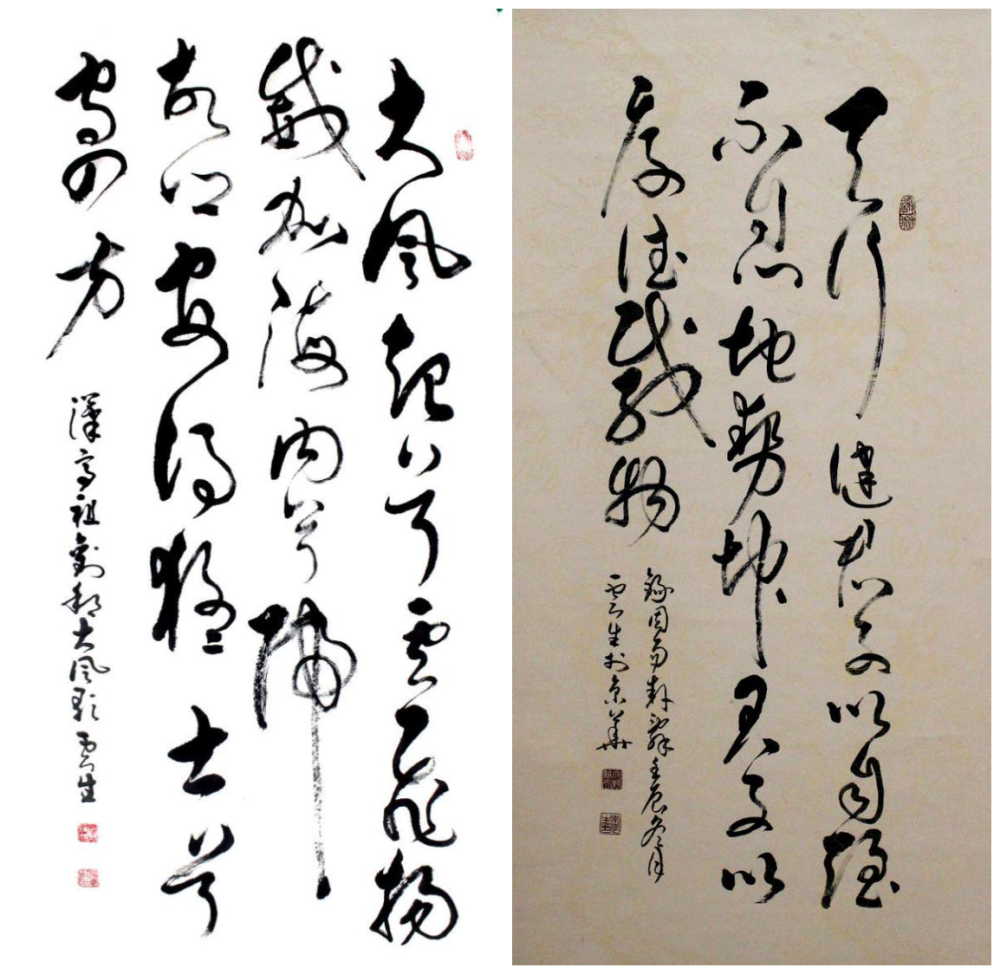 大風起兮雲飛揚
威加海內兮歸
故鄉安得猛士兮
守四方
漢高祖劉邦大風歌 雲生
天行健君子以自強
不息地勢坤君子以
厚德載物
錄周易卦辭壬辰冬月
雲生於京華